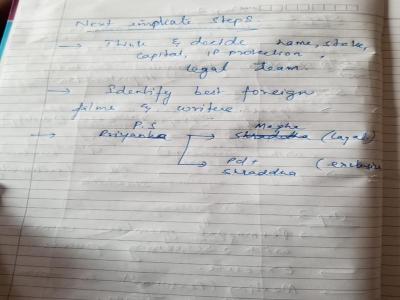 Next immediate steps.
→ Think & decide name, state,
capital, IP protection,
legal team.
→ Identify best foreign
films & writers.
P.S Megha
→ Priyanka → Shraddha (Legal)
→ Pd +
Shraddha